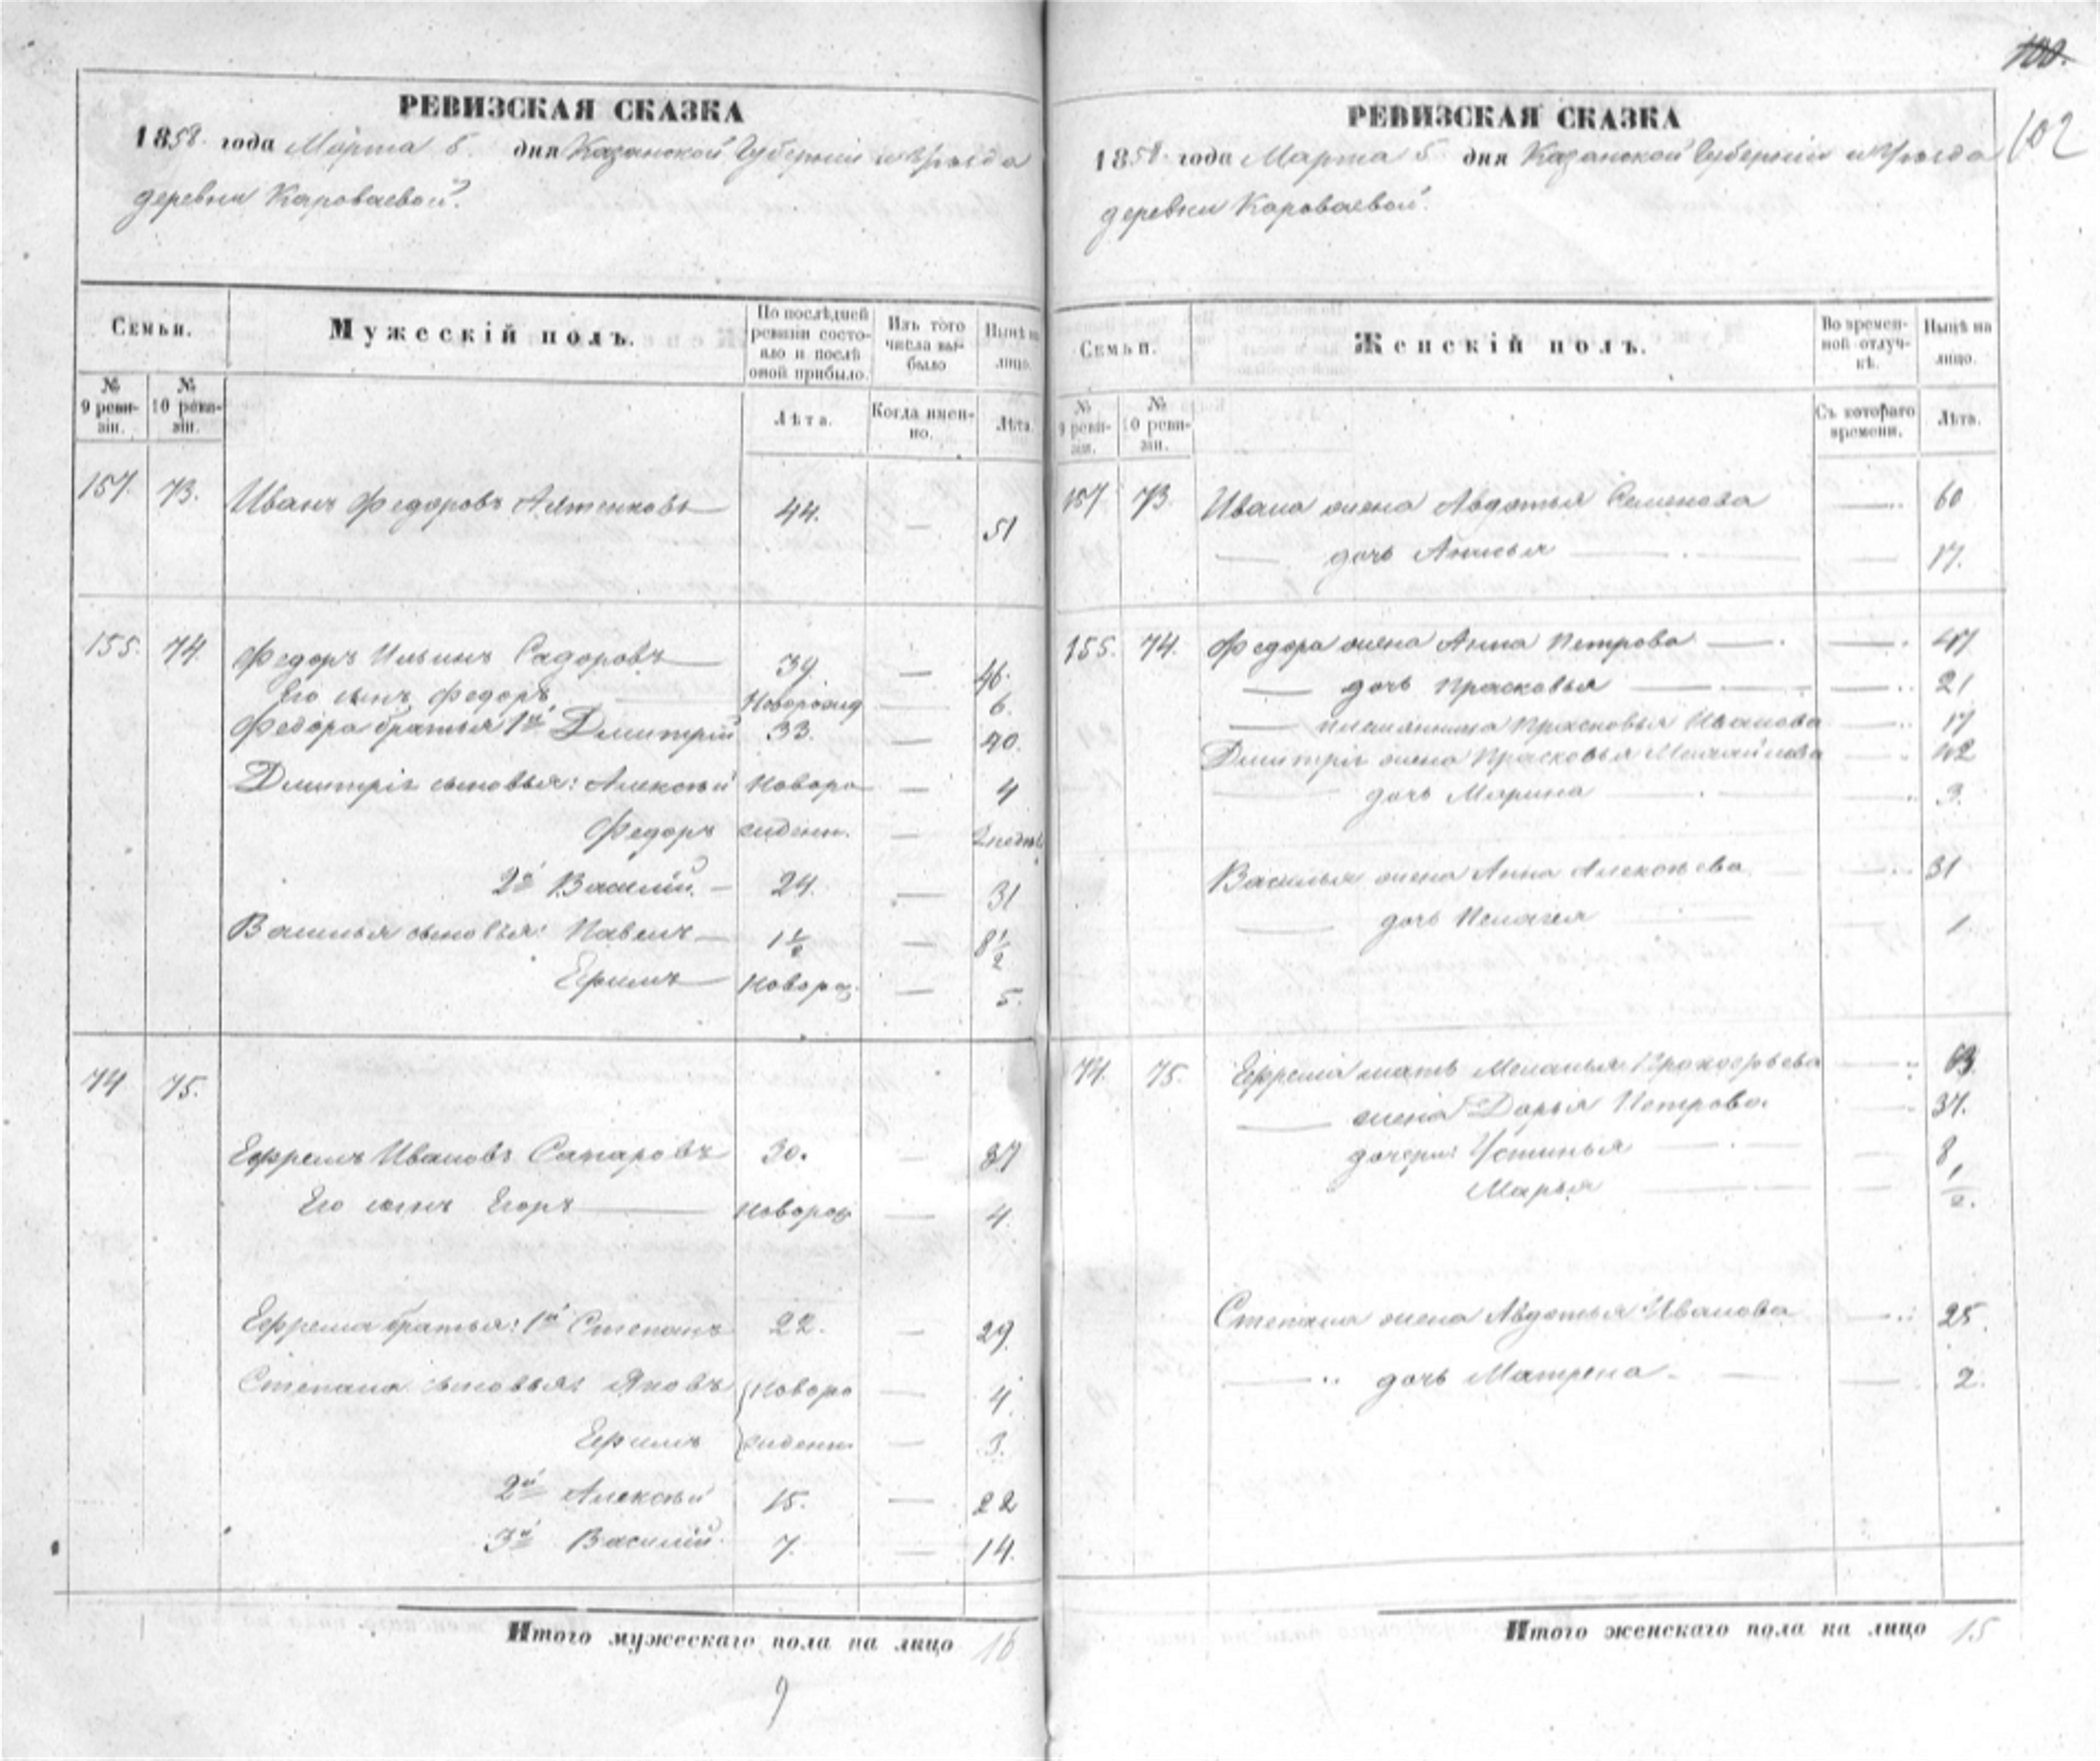 РЕВИЗСКАЯ СКАЗКА
1858 года Марта 5 дня Казанской Губернии и Уезда
деревни Кароваевой.
Семьи.
Мужескій полъ.
По послѣдней ревизіи состояло и послѣ оной прибыло.
Изъ того числа выбыло
Нынѣ на лицо.
№ 9 ревизіи.
№ 10 ревизіи.
Лѣта.
Когда именно.
Лѣта.
157. 73. Иванъ Федоровъ 44. — 51
155. 74. Федоръ Ильинъ Садоровъ 39 — 46.
Его сынъ Федоръ Новорожд — 6.
Федора братья 1й Дмитрій 33. — 40.
Дмитрія сыновья: Алексѣй Новоро — 4
Федоръ жденн. — 2 недѣл
2й Василій. — 24. — 31
Василья сыновья: Павелъ — 1½ — 8½
Ефимъ Новорож. — 5.
74 75.
Ефремъ Ивановъ 30. — 37
Его сынъ Егоръ Новорож — 4.
Ефрема братья: 1й Степанъ 22. — 29.
Степана сыновья: Яковъ Новоро — 4.
Ефимъ жденн — 3.
2й Алексѣй 15. — 22
3й Василій. 7. — 14.
Итого мужескаго пола на лицо 16
9
100.
102
РЕВИЗСКАЯ СКАЗКА
1858 года Марта 5 дня Казанской Губернии и Уезда
деревни Кароваевой.
Семьи.
Женскій полъ.
Во временной отлучкѣ.
Нынѣ на лицо.
№ 9 ревизіи.
№ 10 ревизіи.
Съ котораго времени.
Лѣта.
157 73. Ивана жена Авдотья Семенова — 60
— дочь Анисья — 17.
155. 74. Федора жена Анна Петрова — 47
— дочь Прасковья — 21
— племянница Прасковья Иванова — 17
Дмитрія жена Прасковья Михайлова — 42
— дочь Марина — 3.
Василья жена Анна Алексѣева — 31
— дочь Пелагея — 1.
74. 75. Ефрема мать Меланья Прокофьева — 63.
— жена Дарья Петрова. — 37.
дочери: Устинья — 8
Марья — ½.
Степана жена Авдотья Иванова — 25.
— дочь Матрена — 2.
Итого женскаго пола на лицо 15